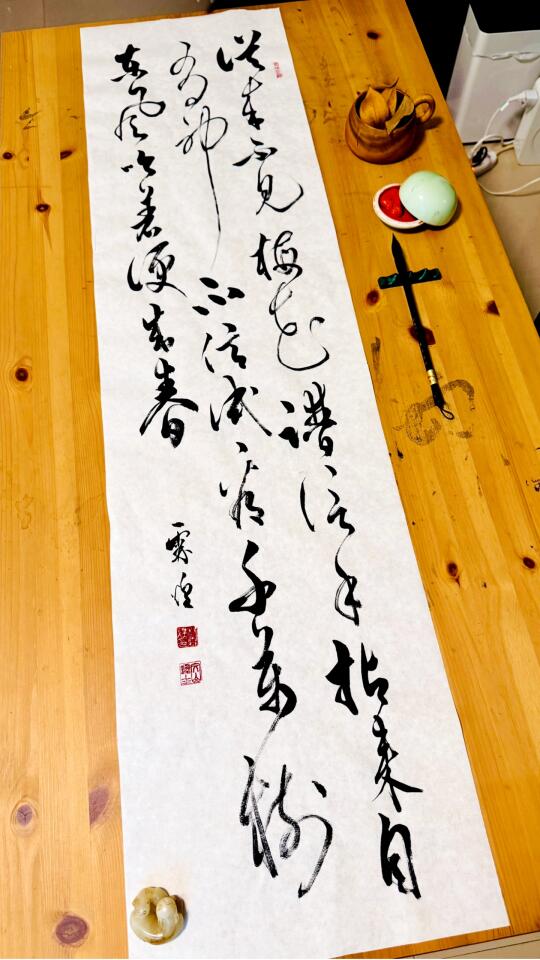 从来不见梅花谱信手拈来自
有神不信试看千万树
东风吹着便成春